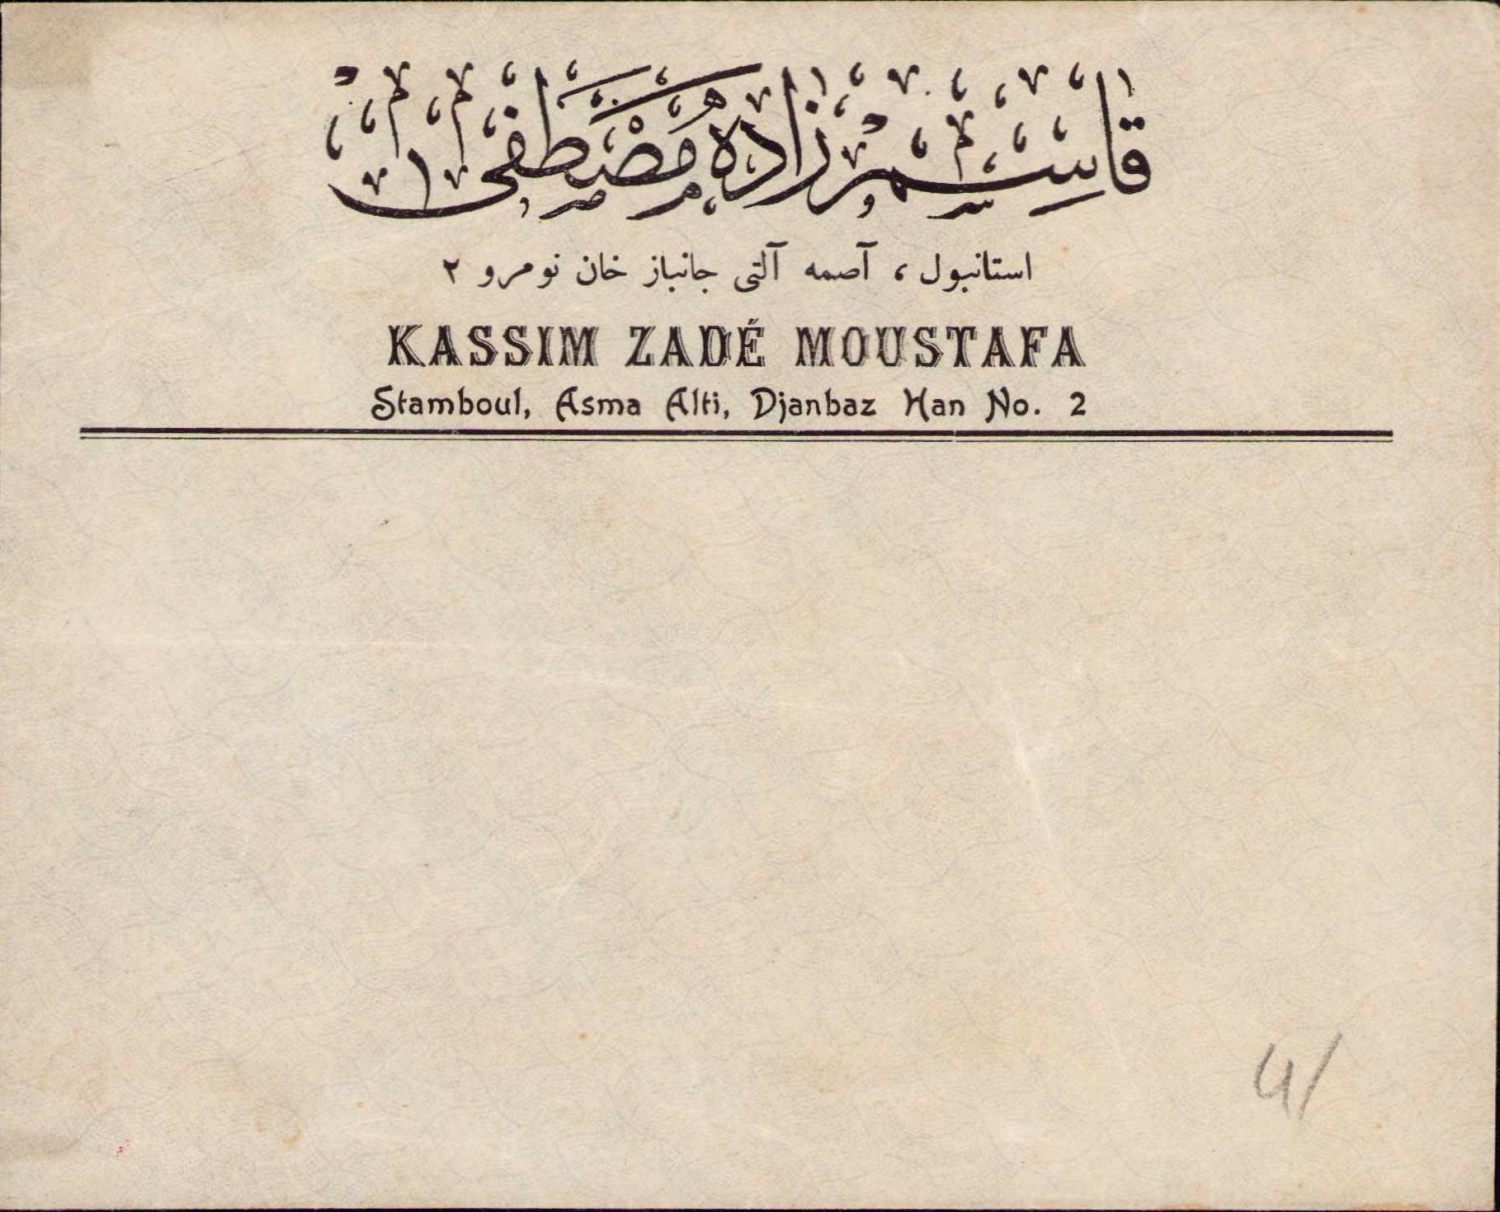 قاسم زاده مصطفى
استانبول ، آصمه آلتى جانباز خان نومرو ٢
KASSIM ZADÉ MOUSTAFA
Stamboul, Asma Alti, Djanbaz Han No. 2